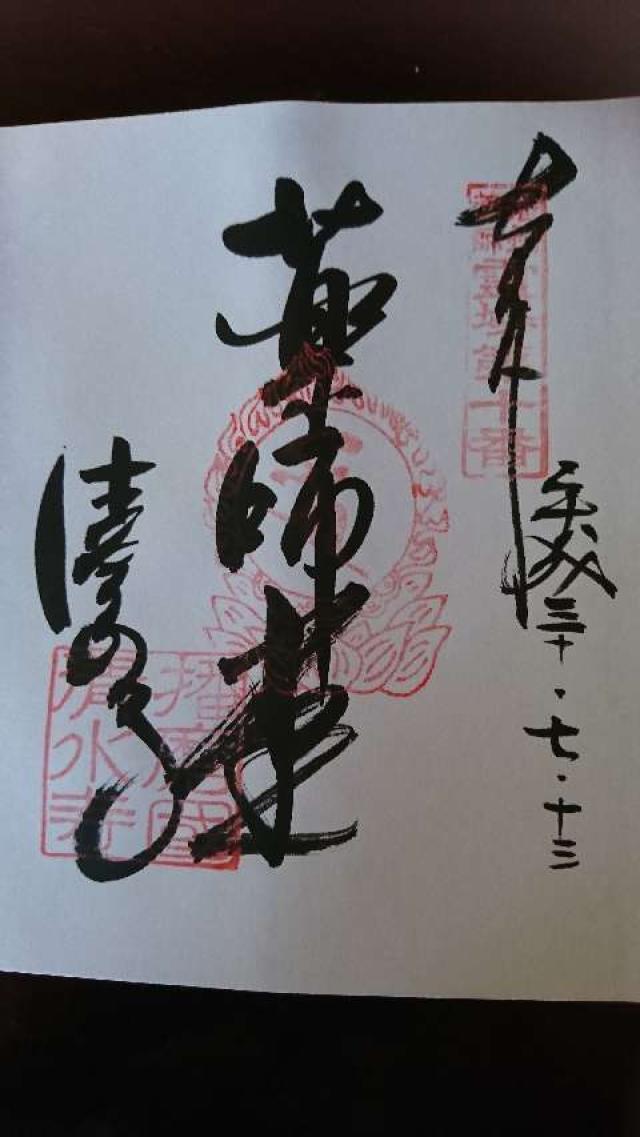 奉拝
平成三十・七・十三
薬師如来
清水寺
霊場第十番
播磨國
清水寺